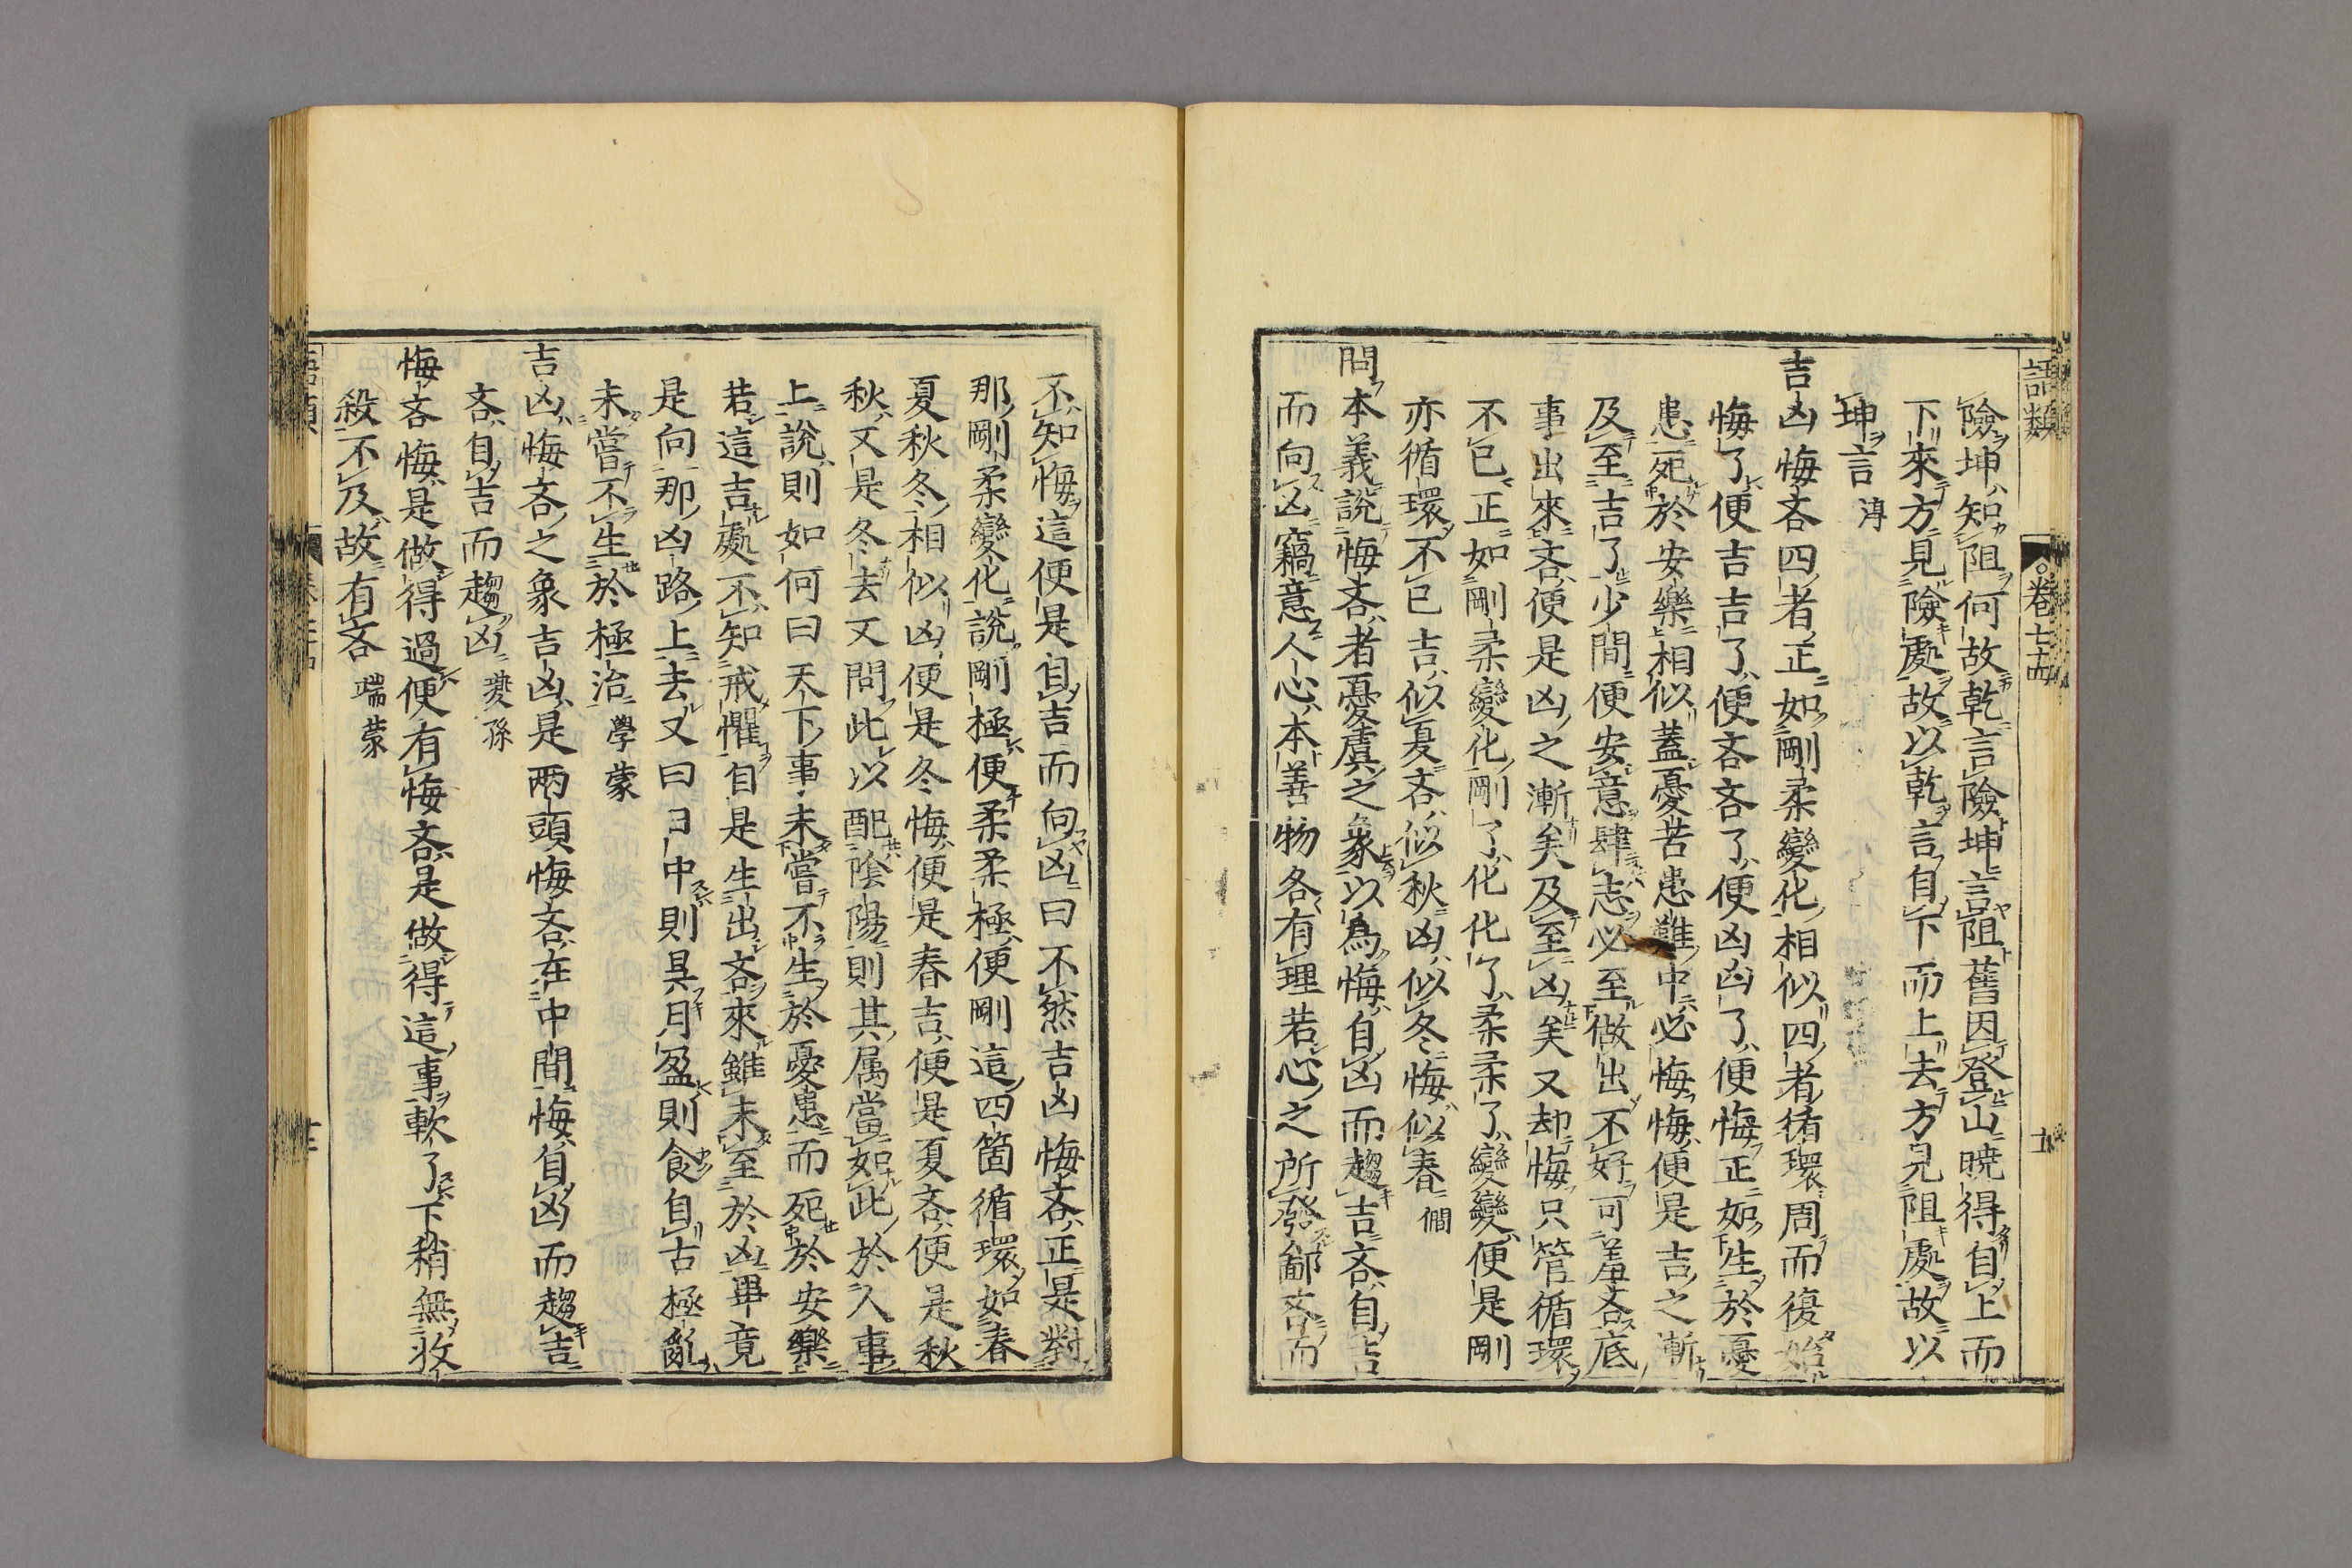 語類
卷七十四
十一
險坤知阻何故乾言險坤言阻舊因登山曉得自上而
下來方見險處故以乾言自下而上去方見阻處故以
坤言 淳
吉凶悔吝四者正如剛柔變化相似四者循環周而復始
悔了便吉吉了便吝吝了便凶凶了便悔正如生於憂
患死於安樂相似蓋憂苦患難中必悔悔便是吉之漸
及至吉了少間便安意肆志必至做出不好可羞吝底
事出來吝便是凶之漸矣及至凶矣又却悔只管循環
不已正如剛柔變化剛了化化了柔柔了變變便是剛
亦循環不已吉似夏吝似秋凶似冬悔似春 僩
問本義說悔吝者憂虞之象以為悔自凶而趨吉吝自吉
而向凶竊意人心本善物各有理若心之所發鄙吝而
不知悔這便是自吉而向凶曰不然吉凶悔吝正是對
那剛柔變化說剛極便柔柔極便剛這四箇循環如春
夏秋冬相似凶便是冬悔便是春吉便是夏吝便是秋
秋又是冬去又問此以配陰陽則其属當如此於人事
上說則如何曰天下事未嘗不生於憂患而死於安樂
若這吉處不知戒懼自是生出吝來雖未至於凶畢竟
是向那凶路上去又曰日中則昃月盈則食自古極亂
未嘗不生於極治 學蒙
吉凶悔吝之象吉凶是两頭悔吝在中間悔自凶而趨吉
吝自吉而趨凶 夔孫
悔吝悔是做得過便有悔吝是做得這事軟了下稍無收
殺不及故有吝 端蒙